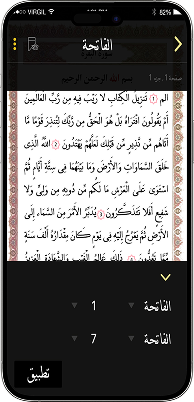 VIRGIL 52%
الفاتحة
صفحة 1, جزء 1
بسم الله الرحمن الرحيم
الم ١ تنزيل الكتاب لا ريب فيه من رب العالمين ٢
أم يقولون افتراه بل هو الحق من ربك لتنذر قوما ما
أتاهم من نذير من قبلك لعلهم يهتدون ٣ الله الذي
خلق السماوات والأرض وما بينهما في ستة أيام ثم
استوى على العرش ما لكم من دونه من ولي ولا
شفيع أفلا تتذكرون ٤ يدبر الأمر من السماء إلى
الأرض ثم يعرج إليه في يوم كان مقداره ألف سنة
مما تعدون ٥ ذلك عالم الغيب والشهادة العزيز
الفاتحة 1
الفاتحة 7
تطبيق